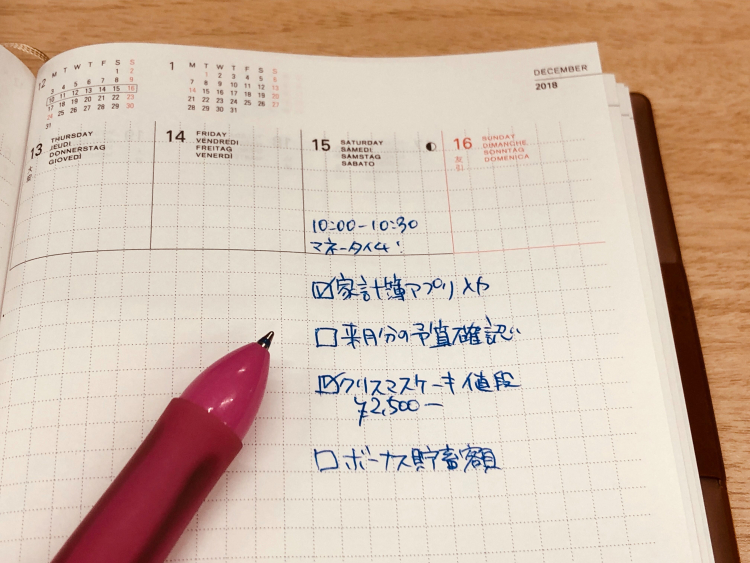 DECEMBER
2018
12 M T W T F S S
1 2
3 4 5 6 7 8 9
10 11 12 13 14 15 16
17 18 19 20 21 22 23
24 25 26 27 28 29 30
31
1 M T W T F S S
1 2 3 4 5 6
7 8 9 10 11 12 13
14 15 16 17 18 19 20
21 22 23 24 25 26 27
28 29 30 31
13 THURSDAY
JEUDI
DONNERSTAG
GIOVEDÌ
14 FRIDAY
VENDREDI
FREITAG
VENERDÌ
15 SATURDAY
SAMEDI
SAMSTAG
SABATO
16 SUNDAY
DIMANCHE
SONNTAG
DOMENICA
友引
10:00-10:30
マネータイム!
☑家計簿アプリ入力
□来月分の予算確認
☑クリスマスケーキ値段
¥2,500ー
□ボーナス貯蓄額